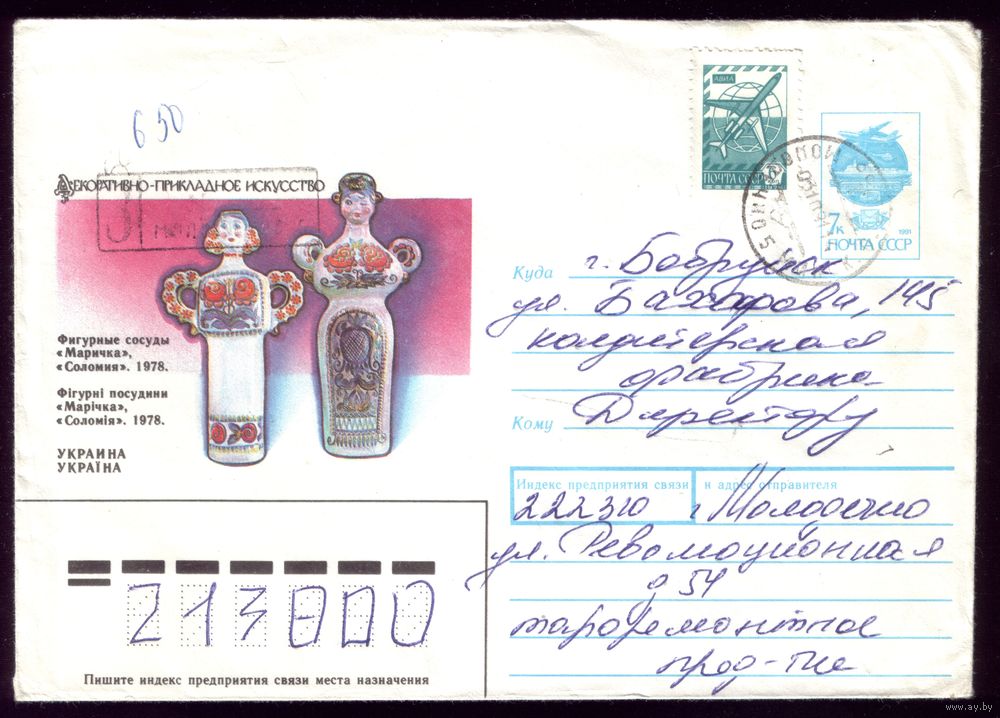 650
АВИА
ПОЧТА СССР
7к
1991
ПОЧТА СССР
ДЕКОРАТИВНО-ПРИКЛАДНОЕ ИСКУССТВО
Фигурные сосуды
«Маричка»,
«Соломия». 1978.
Фігурні посудини
«Марічка»,
«Соломія». 1978.
УКРАИНА
УКРАЇНА
Куда г. Бобруйск
ул. Бахарова, 145
кондитерская
фабрика
Кому Директору
Индекс предприятия связи и адрес отправителя
222310 г Молодечно
ул. Революционная
д 54
тароремонтное
пред-тие
213800
Пишите индекс предприятия связи места назначения
www.ay.by